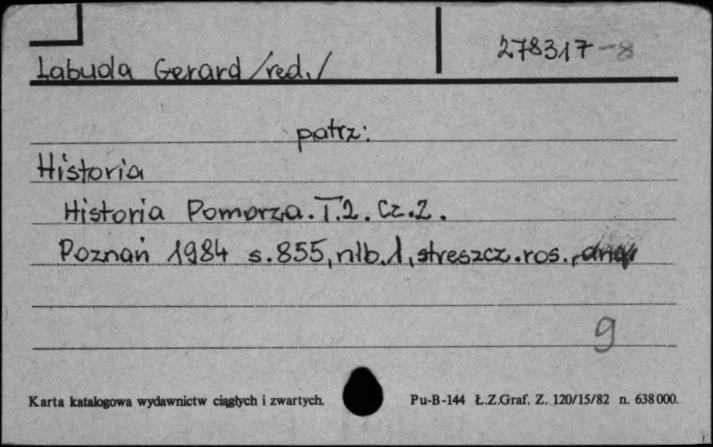 Labuda Gerard /red./ 278317-8
patrz:
Historia
Historia Pomorza. T.2. Cz.2.
Poznań 1984 s.855, nlb.1, streszcz. ros.,
g
Karta katalogowa wydawnictw ciągłych i zwartych. Pu-B-144 Ł.Z.Graf. Z. 120/15/82 n. 638000.